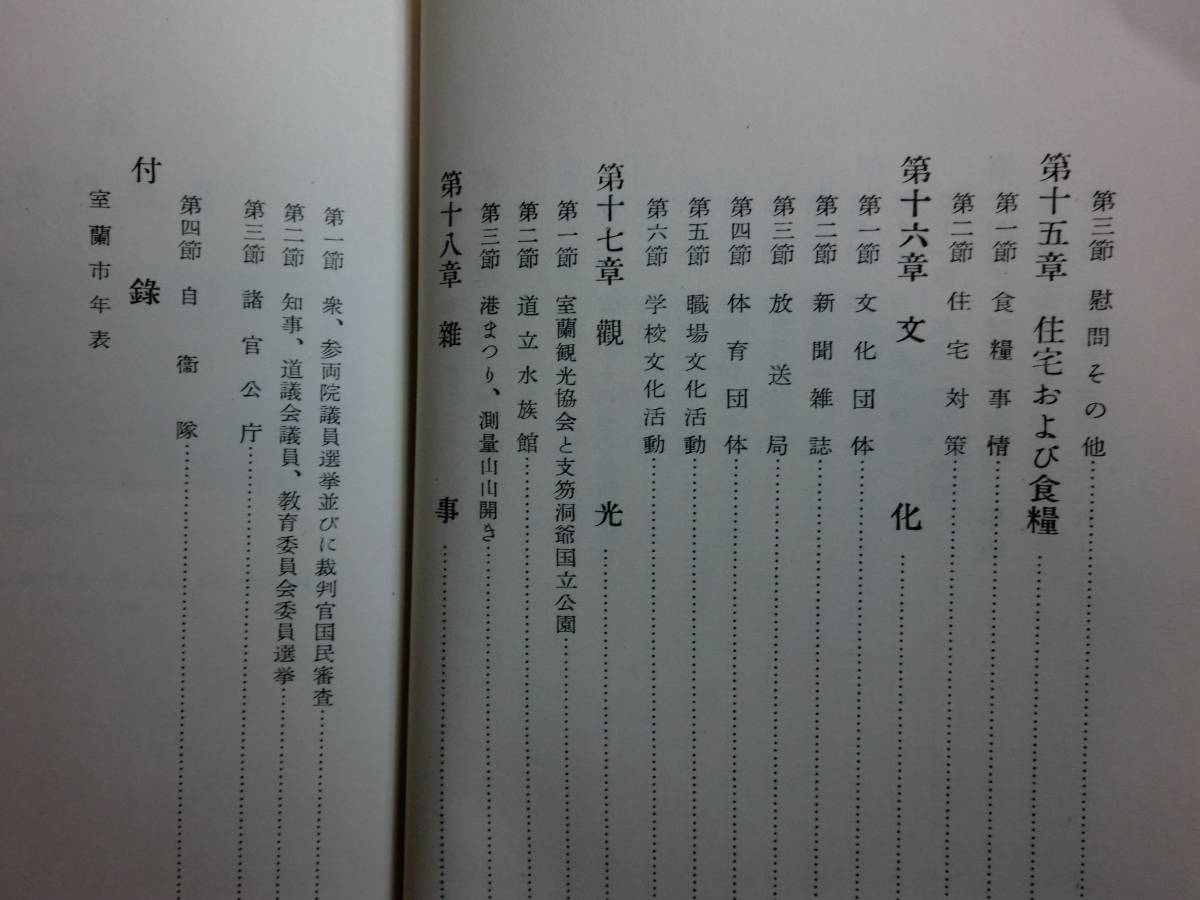 第三節 慰問その他
第十五章 住宅および食糧
第一節 食糧事情
第二節 住宅対策
第十六章 文化
第一節 文化団体
第二節 新聞雑誌
第三節 放送局
第四節 体育団体
第五節 職場文化活動
第六節 学校文化活動
第十七章 觀光
第一節 室蘭観光協会と支笏洞爺国立公園
第二節 道立水族館
第三節 港まつり、測量山山開き
第十八章 雜事
第一節 衆、参両院議員選挙並びに裁判官国民審査
第二節 知事、道議会議員、教育委員会委員選挙
第三節 諸官公庁
第四節 自衞隊
付錄
室蘭市年表